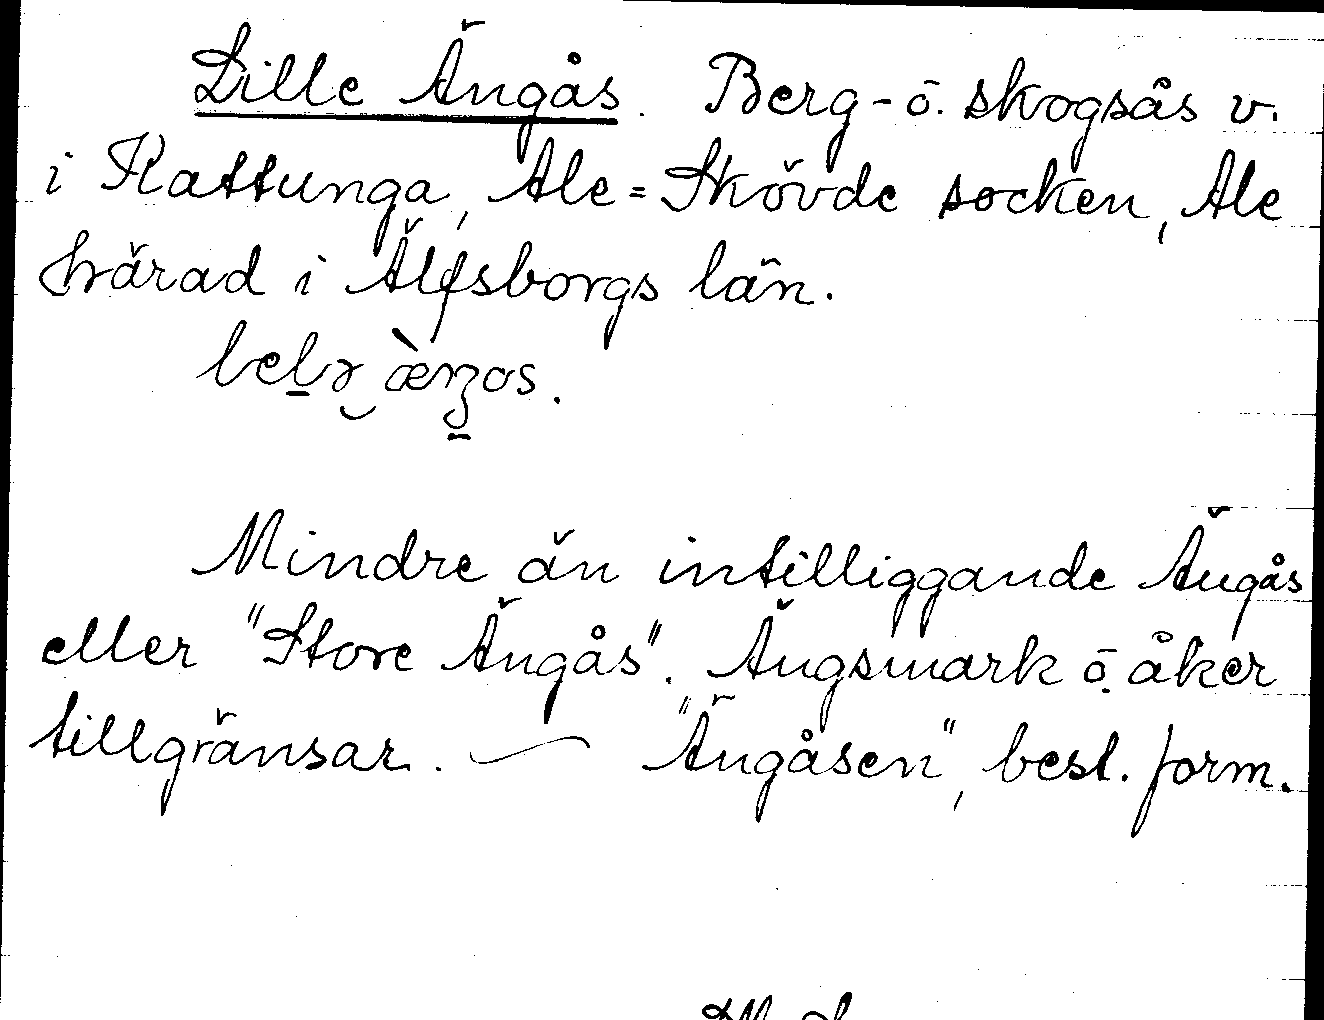 Lille Ängås. Berg- ō. skogsås v.
i Kattunga, Ale=Skövde socken, Ale
härad i Älfsborgs län.
Mindre än intilliggande Ängås
eller "Store Ängås". Ängsmark ō. åker
tillgränsar. — "Ängåsen", best. form.